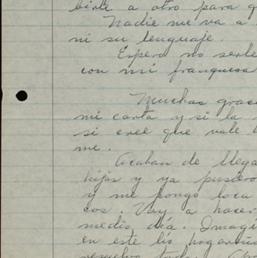 birle a otro para q
Nadie me va a
ni su lenguaje.
Espero no serle
con mi franqueza
Muchas grac
mi carta y si la
si cree que vale l
me.
Acaban de llega
hijos y ya pusiero
y me pongo loca
cos. Voy a hacer
medio día. Imagi
en este lío hogareño